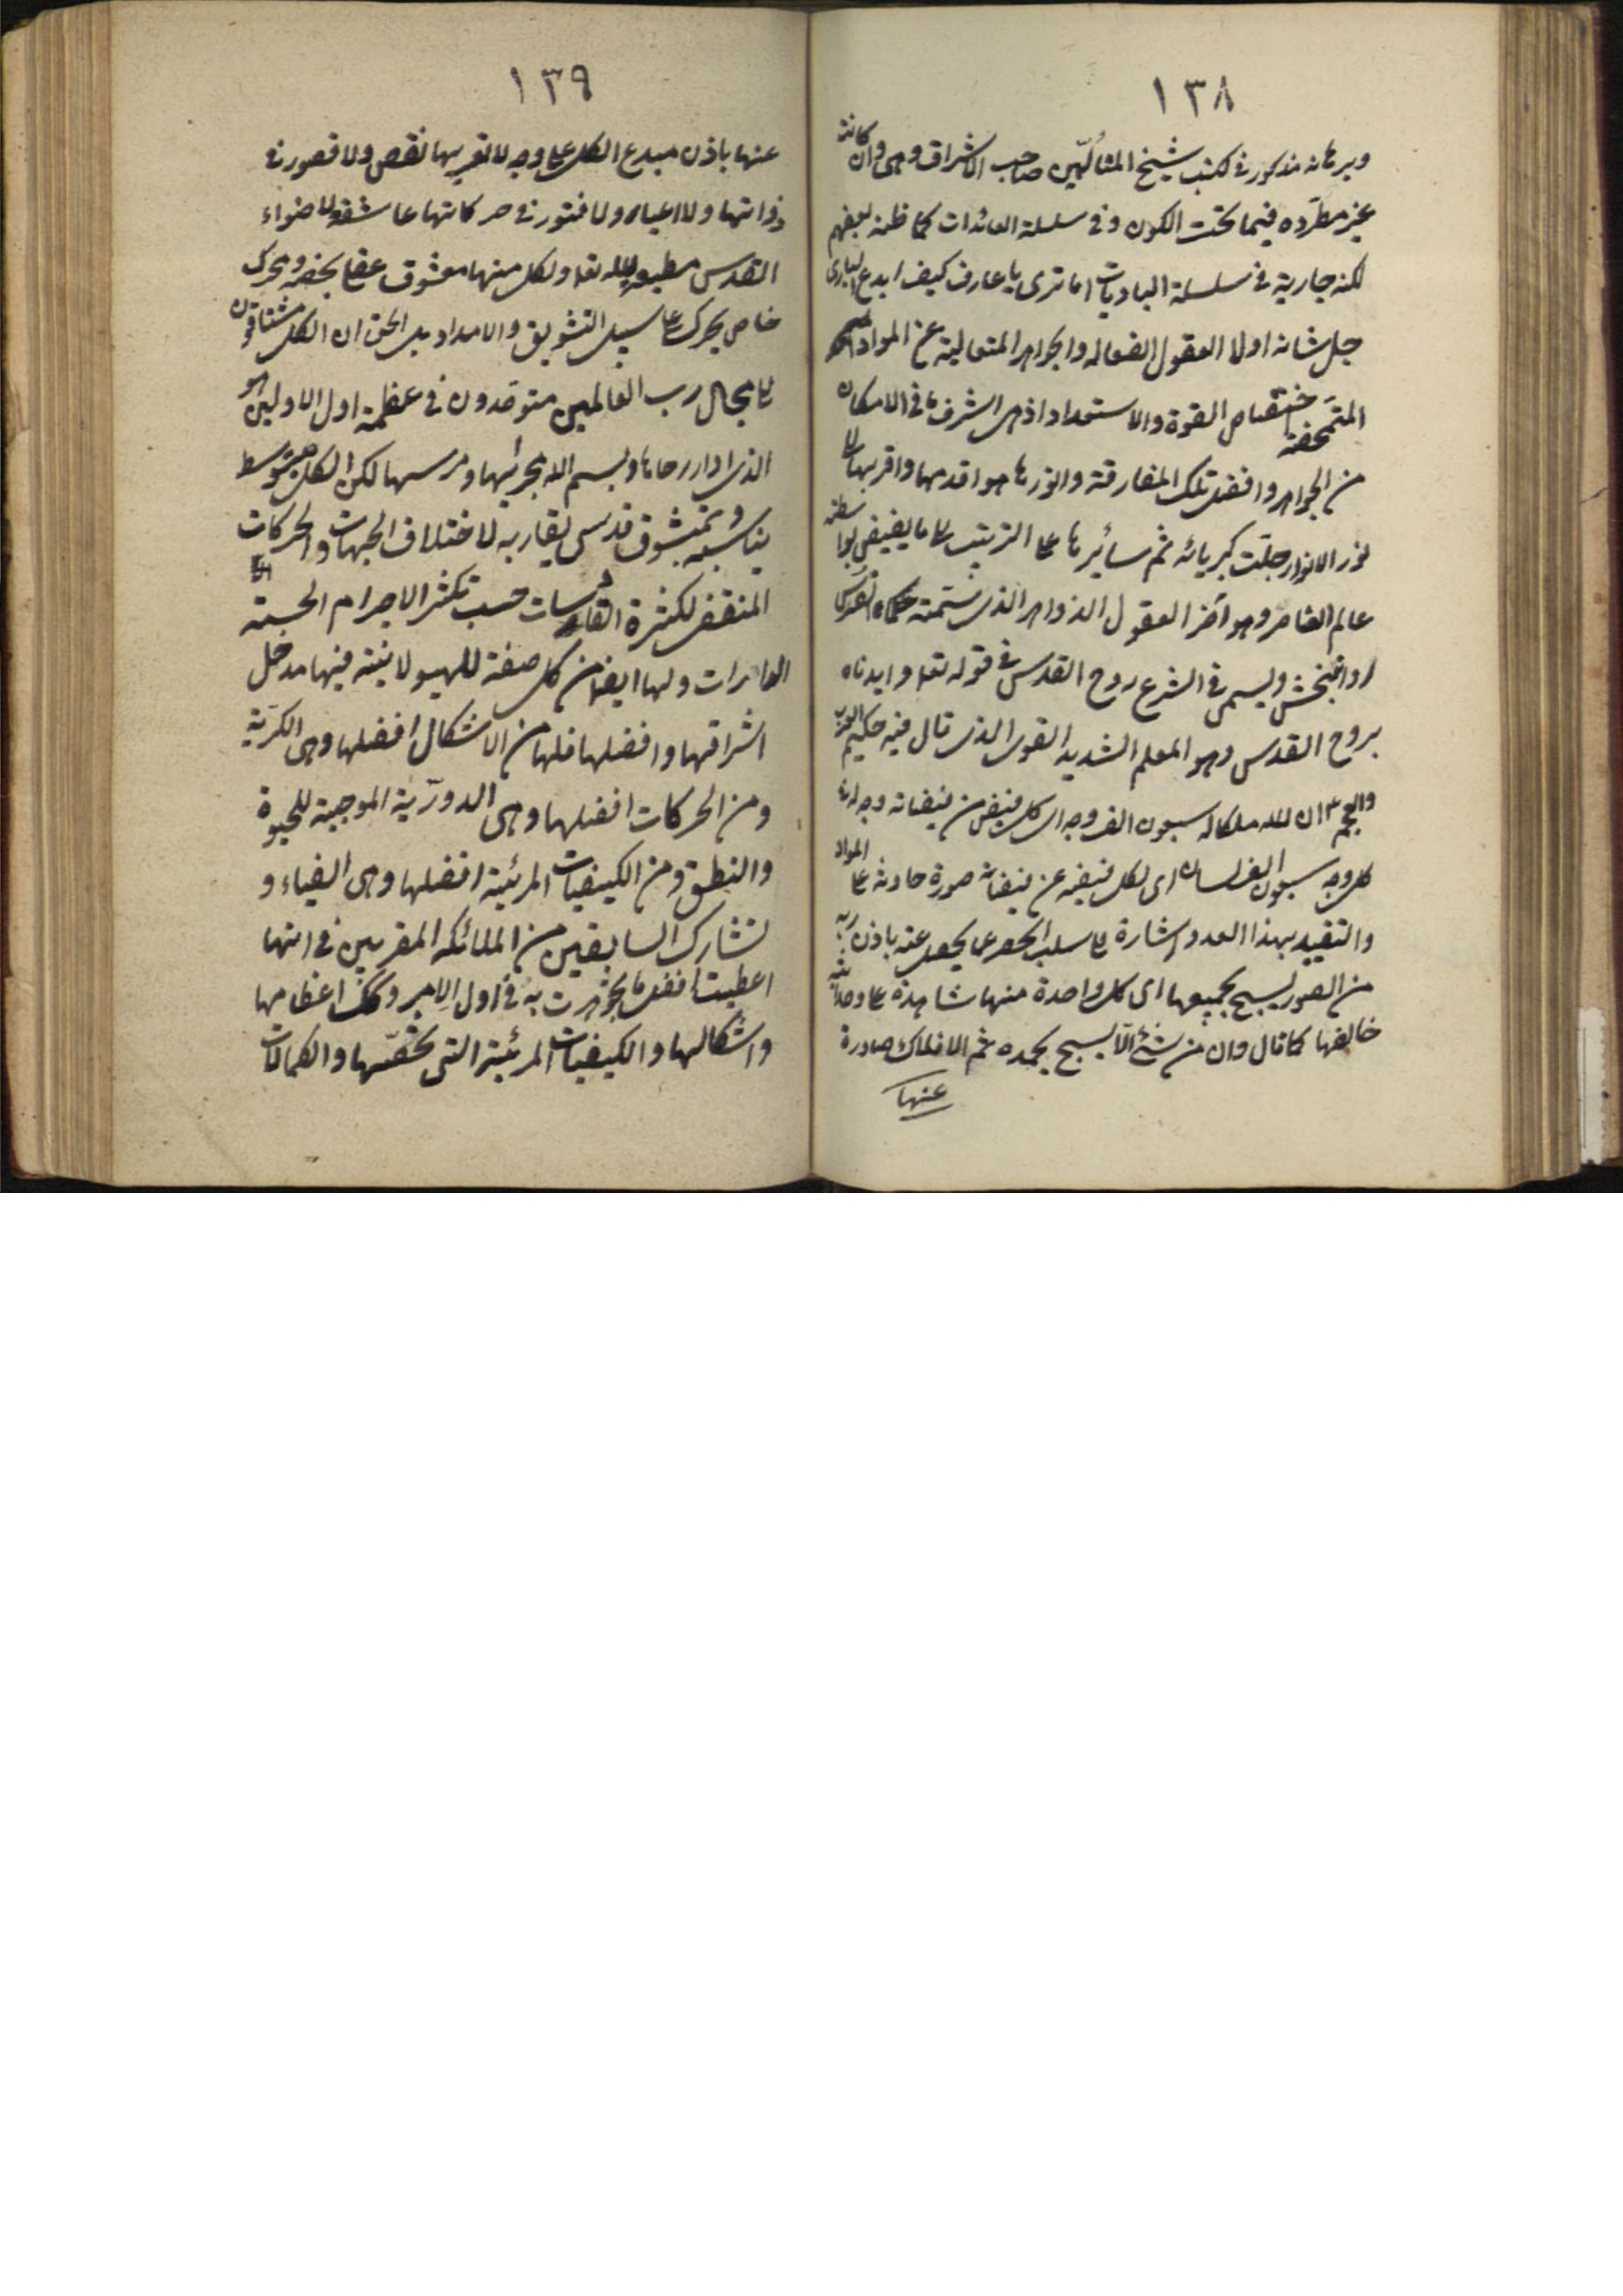 ١٣٨
وبرهانه مذكور في كتب شيخ المتألّهين صاحب الاشراق وهى وان كانت
غير مطرّده فيما تحت الكون وفى سلسلة العائدات كما ظنه بعضهم
لكنه جارية في سلسلة الباديات اما ترى يا عارف كيف ابدع البارى
جل شانه اولا العقول الفعاله والجواهر المتعالية عن المواد
القوة والاستعداد اذ هى اشرف ما فى الامكان
من الجواهر وافضل تلك المفارقة وانورها هو اقدمها واقربها الى
نور الانوار جلّت كبريائه ثم سائرها على الترتيب الى ما يفيض بواسطته
عالم العناصر وهو آخر العقول الذواهر الذى سمته حكماء الفرس
روانبخش ويسمى في الشرع روح القدس في قوله تعا وايدناه
بروح القدس وهو المعلم الشديد القوى الذى قال فيه حكيم العرب
والعجم ان لله ملكا له سبعون الف وجه اى كل فيض من فيضانه وجه لها
كل وجه سبعون الف لسان اى لكل فيضه عن فيضانه صورة حادثه على المواد
والتقييد بهذا العدد اشارة الى سلب الحصر عما يحصل عنه باذن ربه
من الصور يسبح بجميعها اى كل واحدة منها شاهدة على وحدانية
خالقها كما قال وان من شئ الّا يسبح بحمده ثم الافلاك صادرة
عنها
١٣٩
عنها باذن مبدع الكل على وجه لا تعتريها نقص ولا قصور في
ذواتها ولا اعياء ولا فتور في حركاتها عاشقه لاضواء
القدس مطيعه لله تعا ولكل منها معشوق عقلى يخصه ومحرك
خاص يحرك على سبيل التشويق والامداد بل الحق ان الكل مشتاقون
الى جمال رب العالمين متوقدون في عظمة اول الاولين هو
الذى ادار رحاها وبسم الله مجراها ومرسها لكن الكل بتوسط
يناسبه وتمعشوق قدسى يقاربه لاختلاف الجهات والحركات
المنقض لكثرة القادسات حسب تكثر الاجرام
ولها ايضا من كل صفة للهيولانية فيها مدخل
اشرافها وافضلها فلها من الاشكال افضلها وهى الكرّية
ومن الحركات افضلها وهى الدورّية الموجبة للحيوة
والنطق ومن الكيفيات المرئية افضلها وهى الضياء و
تشارك السابقين من الملائكه المقربين في انها
اعطيت افضل ما يجوهرت به في اول الامر وكك اعظامها
واشكالها والكيفيات المرئية التى تخصّها والكمالات